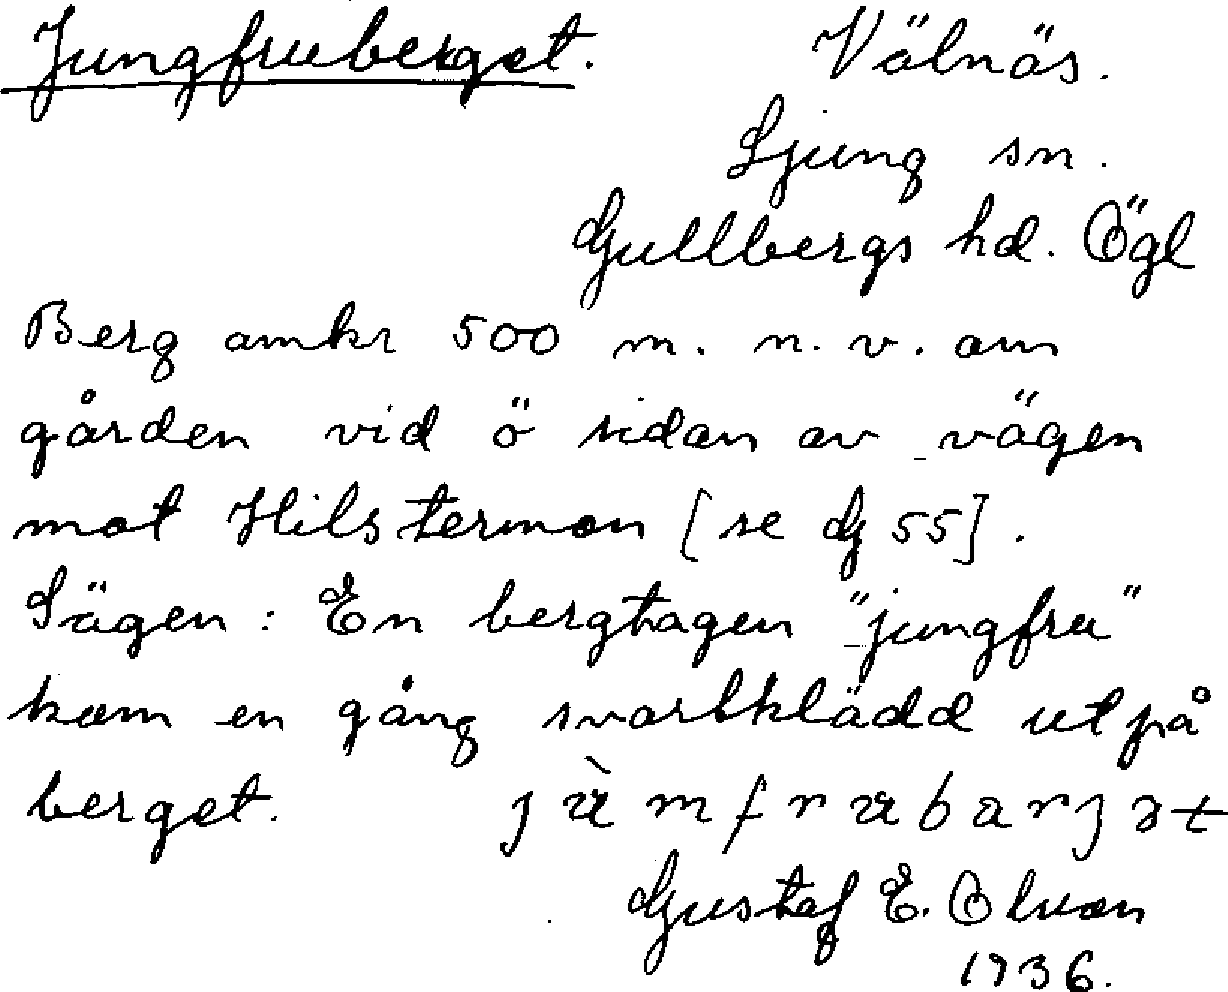 Jungfruberget. Välnäs.
Ljung sn.
Gullbergs hd. Ögl
Berg omkr 500 m. n. v. om
gården vid ö sidan av vägen
mot Hilstermon [se G 55].
Sägen: En bergtagen "jungfru"
kom en gång svartklädd ut på
berget.
Gustaf E. Olson
1936.